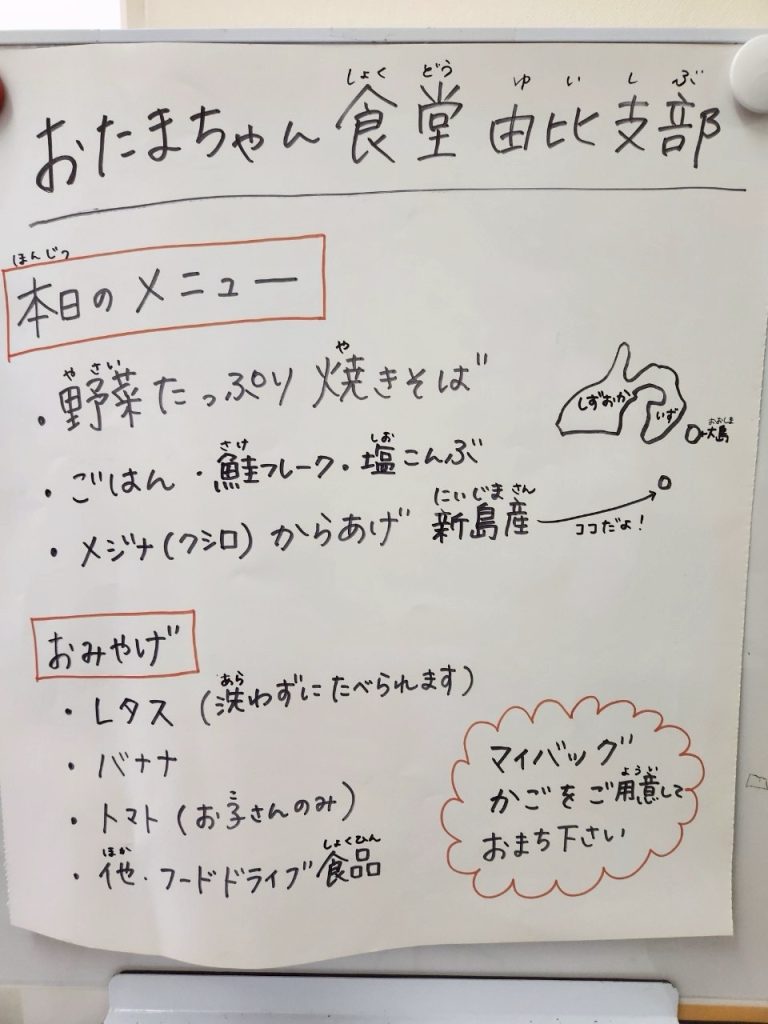 しょく どう ゆ い し ぶ
おたまちゃん 食堂 由比支部
ほんじつ
本日のメニュー
や さい や
・野菜たっぷり焼きそば
さけ しお
・ごはん ・鮭フレーク・塩こんぶ
にいじま さん
・メジナ(クシロ)からあげ 新島産
しずおか
いず
おおしま
大島
ココだよ!
おみやげ
あら
・レタス (洗わずにたべられます)
・バナナ
こ
・トマト (お子さんのみ)
ほか しょくひん
・他・フードドライブ食品
マイバッグ
ようい
かごをご用意して
おまち下さい